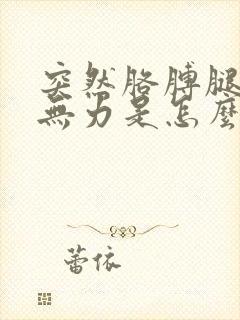 突然胳膊腿
無力是怎麼
蕾依